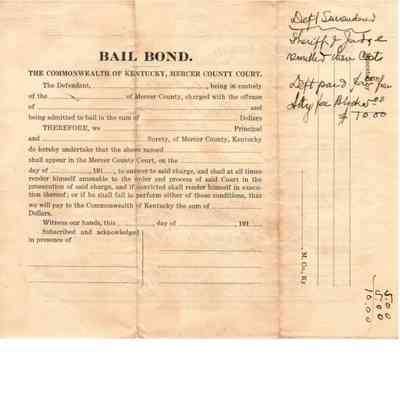 BAIL BOND.
THE COMMONWEALTH OF KENTUCKY, MERCER COUNTY COURT.
The Defendant, , being in custody
of the of Mercer County, charged with the offense
of and
being admitted to bail in the sum of Dollars
THEREFORE, we Principal
and Surety, of Mercer County, Kentucky
do hereby undertake that the above named
shall appear in the Mercer County Court, on the
day of 191 , to answer to said charge, and shall at all times
render himself amenable to the order and process of said Court in the
prosecution of said charge, and if convicted shall render himself in execu-
tion thereof; or if he shall fail to perform either of those conditions, that
we will pay to the Commonwealth of Kentucky the sum of
Dollars.
Witness our hands, this day of , 191
Subscribed and acknowledged
in presence of
Deft Surrendered
Sheriff & Judge
remitted their Costs
Deft paid
Atty fee
$ 10.00
M. Co., Ky
5.00
5.00
10.00